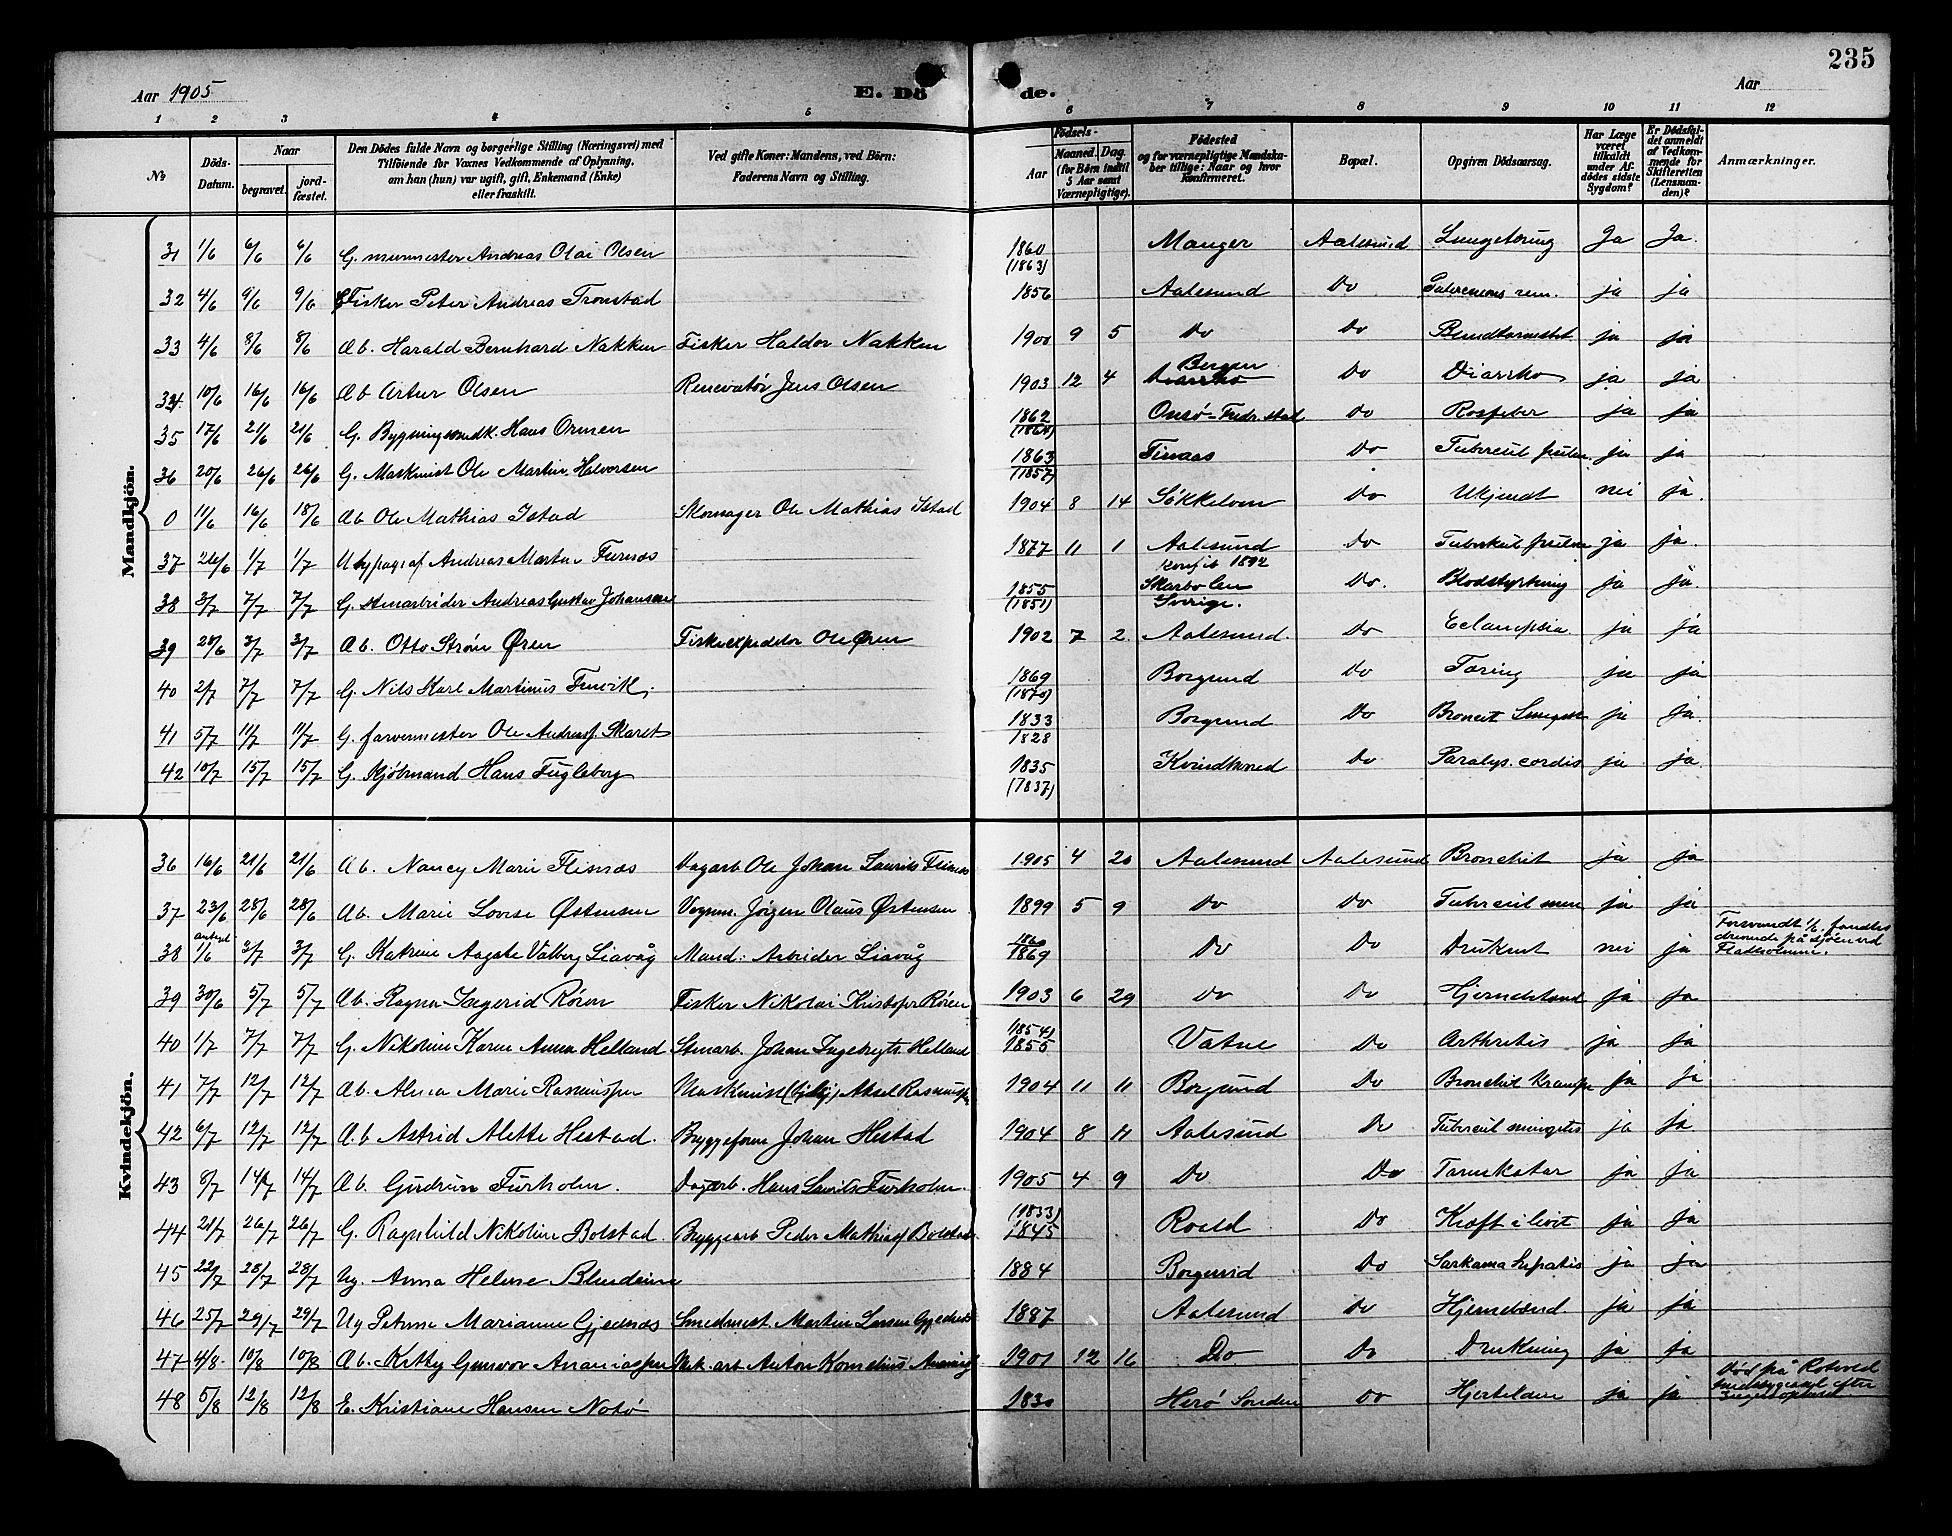 235
Aar 1905
E. Dö de.
Aar
1 2 3 4 5 6 7 8 9 10 11 12
No
Döds-Datum.
Naar
begravet.
jord-fæstet.
Den Dödes fulde Navn og borgerlige Stilling (Næringsvei) med
Tilföiende for Voxnes Vedkommende af Oplysning,
om han (hun) var ugift, gift, Enkemand (Enke)
eller fraskilt.
Ved gifte Koner: Mandens, ved Börn:
Faderens Navn og Stilling.
Födsels-
Aar
Maaned. Dag.
(for Börn indtil
5 Aar samt
Værnepligtige).
Födested
og for værnepligtige Mandska-
ber tillige: Naar og hvor
konfirmeret.
Bopæl.
Opgiven Dödsaarsag.
Har Læge
været
tilkaldt
under Af-
dödes sidste
Sygdom?
Er Dödsfal-
det anmeldt
af Vedkom-
mende for
Skifteretten
(Lensman-
den)?
Anmærkninger.
Mandkjön.
31 1/6 6/6 6/6 G. murmester Andreas Olai Olsen 1860 (1863) Manger Aalesund Lungetæring Ja Ja.
32 4/6 9/6 9/6 G Fisker Peter Andreas Tronstad 1856 Aalesund Do ja ja
33 4/6 8/6 8/6 Ab. Harald Bernhard Nakken Fisker Haldor Nakken 1900 9 5 Do Do ja ja
34 10/6 16/6 16/6 Ab Artur Olsen Renovatör Jens Olsen 1903 12 4 Bergen Do Diarrho ja ja
35 17/6 21/6 21/6 G. Bygningssndk. Hans Ormen 1862 Onsö-Fredr.stad Do Rosfeber ja ja
36 20/6 26/6 26/6 G. Maskinist Ole Martin Halvorsen 1863 (1857) Finaas Do Tubercul pulm ja ja
0 11/6 16/6 18/6 Ab Ole Mathias Istad Skomager Ole Mathias Istad 1904 8 14 Søkkelven Do Ukjendt nei ja.
37 26/6 1/7 1/7 U typograf Andreas Martin Furnæs 1877 11 1 Aalesund konf. 1892 Do Tuberkul pulm ja ja.
38 3/7 7/7 7/7 G. stenarbeider Andreas Gustav Johansen 1855 (1851) Sverige. Do. Blodstyrtning ja ja.
39 28/6 3/7 3/7 Ab. Otto Strøm Ören Fiskeexpeditör Ole Ören 1902 7 2 Aalesund. Do Eclampsia ja ja
40 2/7 7/7 7/7 G. Nils Karl Martinus 1869 (1870) Borgund Do Tæring ja ja
41 5/7 11/7 11/7 G. farvermester Ole Andreas Skaret 1833 1828 Borgund Do ja ja.
42 10/7 15/7 15/7 G. Kjöbmand Hans Fugleberg 1835 (1837) Kvindherred Do Paralys. cordis ja ja
Kvindekjön.
36 16/6 21/6 21/6 Ab. Nancy Marie Flisnæs Dagarb Ole Johan Laurits Flisnæs 1905 4 20 Aalesund Aalesund Bronchit ja ja
37 23/6 28/6 28/6 Ab. Marie Lovise Østensen Vognm. Jörgen Olaus Østensen 1899 5 9 Do Do Tubercul men ja ja
38 antagl. 1/6 3/7 3/7 G. Katrine Aagate Valborg Liavåg Mand: Arbeider Liavåg 1860 1869 Do Do Druknet nei ja Forsvundt 1/6, fandtes drivende på sjöen ved Flatholmene.
39 30/6 5/7 5/7 Ab. Ragna Ingerid Rören Fisker Nikolai Kristofer Rören 1903 6 29 Do Do ja ja
40 1/7 7/7 7/7 G. Nikoline Karen Anna Helland Stenarb. Johan Ingebrigts. Helland (1854) 1855 Vatne Do Arthritis ja ja
41 7/7 12/7 12/7 Ab. Alma Marie Rasmussen Maskinist Aksel Rasmussen 1904 11 11 Borgund Do Bronchit Krampe ja ja
42 6/7 12/7 12/7 A.b Astrid Alette Hestad. Byggeform Johan Hestad 1904 8 11 Aalesund Do Tubercul meningitis ja ja.
43 8/7 14/7 14/7 Ab. Gudrun Furholm. Dagarb. Hans Laurits Furholm. 1905 4 9 Do Do Tarmkatar ja ja
44 21/7 26/7 26/7 G. Ragnhild Nikoline Bolstad. Byggearb Peder Mathias Bolstad (1833) 1845 Roald Do Kræft i livet ja ja
45 22/7 28/7 28/7 Ug. Anna Helene Blindeim 1884 Borgund Do Sarkoma hepatis ja ja
46 25/7 29/7 29/7 Ug Petrine Marianne Gjednæs Smedmest. Martin Larsen Gjednæs 1887 Aalesund Do Hjernebænd. ja ja
47 4/8. 10/8 10/8 Ab. Kitty Gunvor Ananiassen Mek. arb Anton Kornelius 1901 12 16 Do Do Drukning ja ja
48 5/8 12/8 12/8 E. Kristiane Hansen Notö 1830 Herö Sönden Do ja ja Död på Rotvold